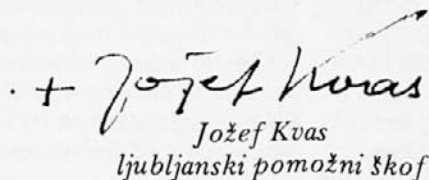 . + Jožef Kvas
Jožef Kvas
ljubljanski pomožni škof